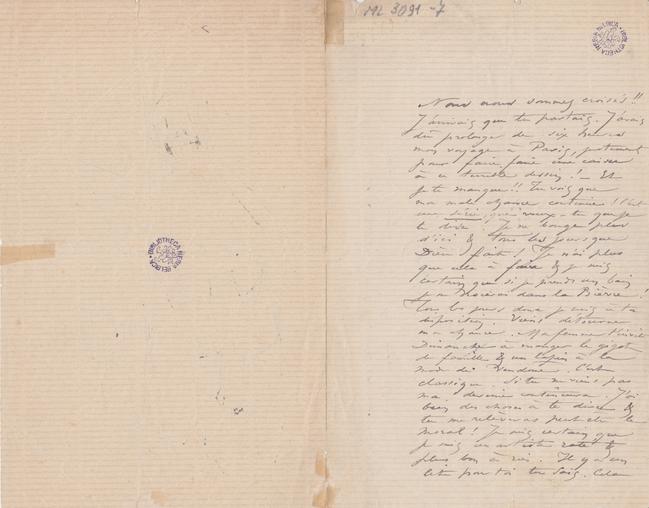 ML 3091-7
BIBLIOTHECA REGIA BELGICA
BIBLIOTHECA REGIA BELGICA
Nous nous sommes croisés !!
J'arrivais que tu partais. J'avais
dû prolonger de six heures
mon voyage à Paris, justement
pour faire faire une caisse
à ce terrible dessin ! — Et
je te manque !! Tu vois que
ma male chance continue ! C'est
une série, que veux-tu que je
te dise ! Je ne bouge plus
d'ici & tous les jours que
Dieu fait ! Je n'ai plus
que cela à faire & je suis
certain que si je prends un bain
dans la Bièvre !
Tous les jours donc je suis à ta
disposition. Viens détourner
ma chance. Ma femme t'invite
Dimanche à manger le gigot
de famille & un lapin à la
mode de Vendôme. C'est
classique. Si tu ne viens pas
ma continuera. J'ai
bien des choses à te dire &
tu me relèveras peut-être le
moral ! Je suis certain que
je suis un artiste raté &
plus bon à rien. Il y a un
lit pour toi tu sais. Cela